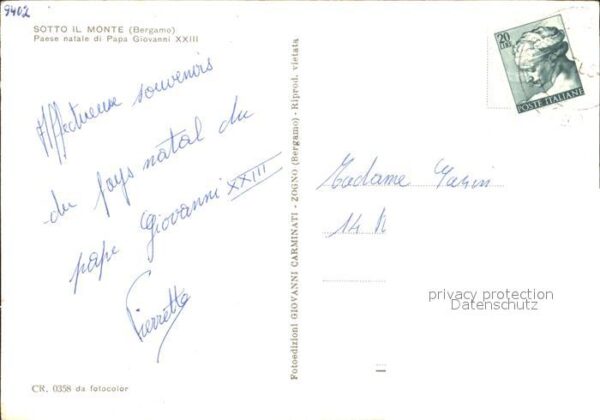 9402
SOTTO IL MONTE (Bergamo)
Paese natale di Papa Giovanni XXIII
Affectueux souvenirs
du pays natal du
pape Giovanni XXIII
Pierrette
CR. 0358 da fotocolor
Fotoedizioni GIOVANNI CARMINATI - ZOGNO (Bergamo) - Riprod. vietata
20
LIRE
POSTE ITALIANE
Madame
14 R
privacy protection
Datenschutz